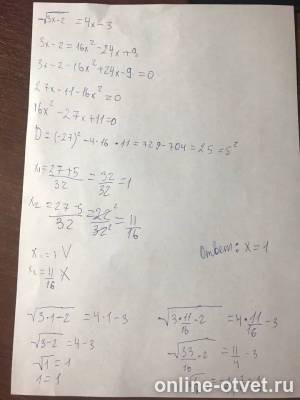 √3x-2 = 4x-3
3x-2=16x²-24x+9
3x-2-16x²+24x-9=0
27x-11-16x²=0
16x²-27x+11=0
D=(-27)²-4·16·11=729-704=25=5²
x₁=27+5/32=32/32=1
x₂=27-5/32=22/32=11/16
x₁=1 V
x₂=11/16 X
Ответ: x=1
√3·1-2 = 4·1-3
√3-2 = 4-3
√1 = 1
1=1
√3·11/16-2 = 4·11/16-3
√33/16-2 = 11/4-3
online-otvet.ru